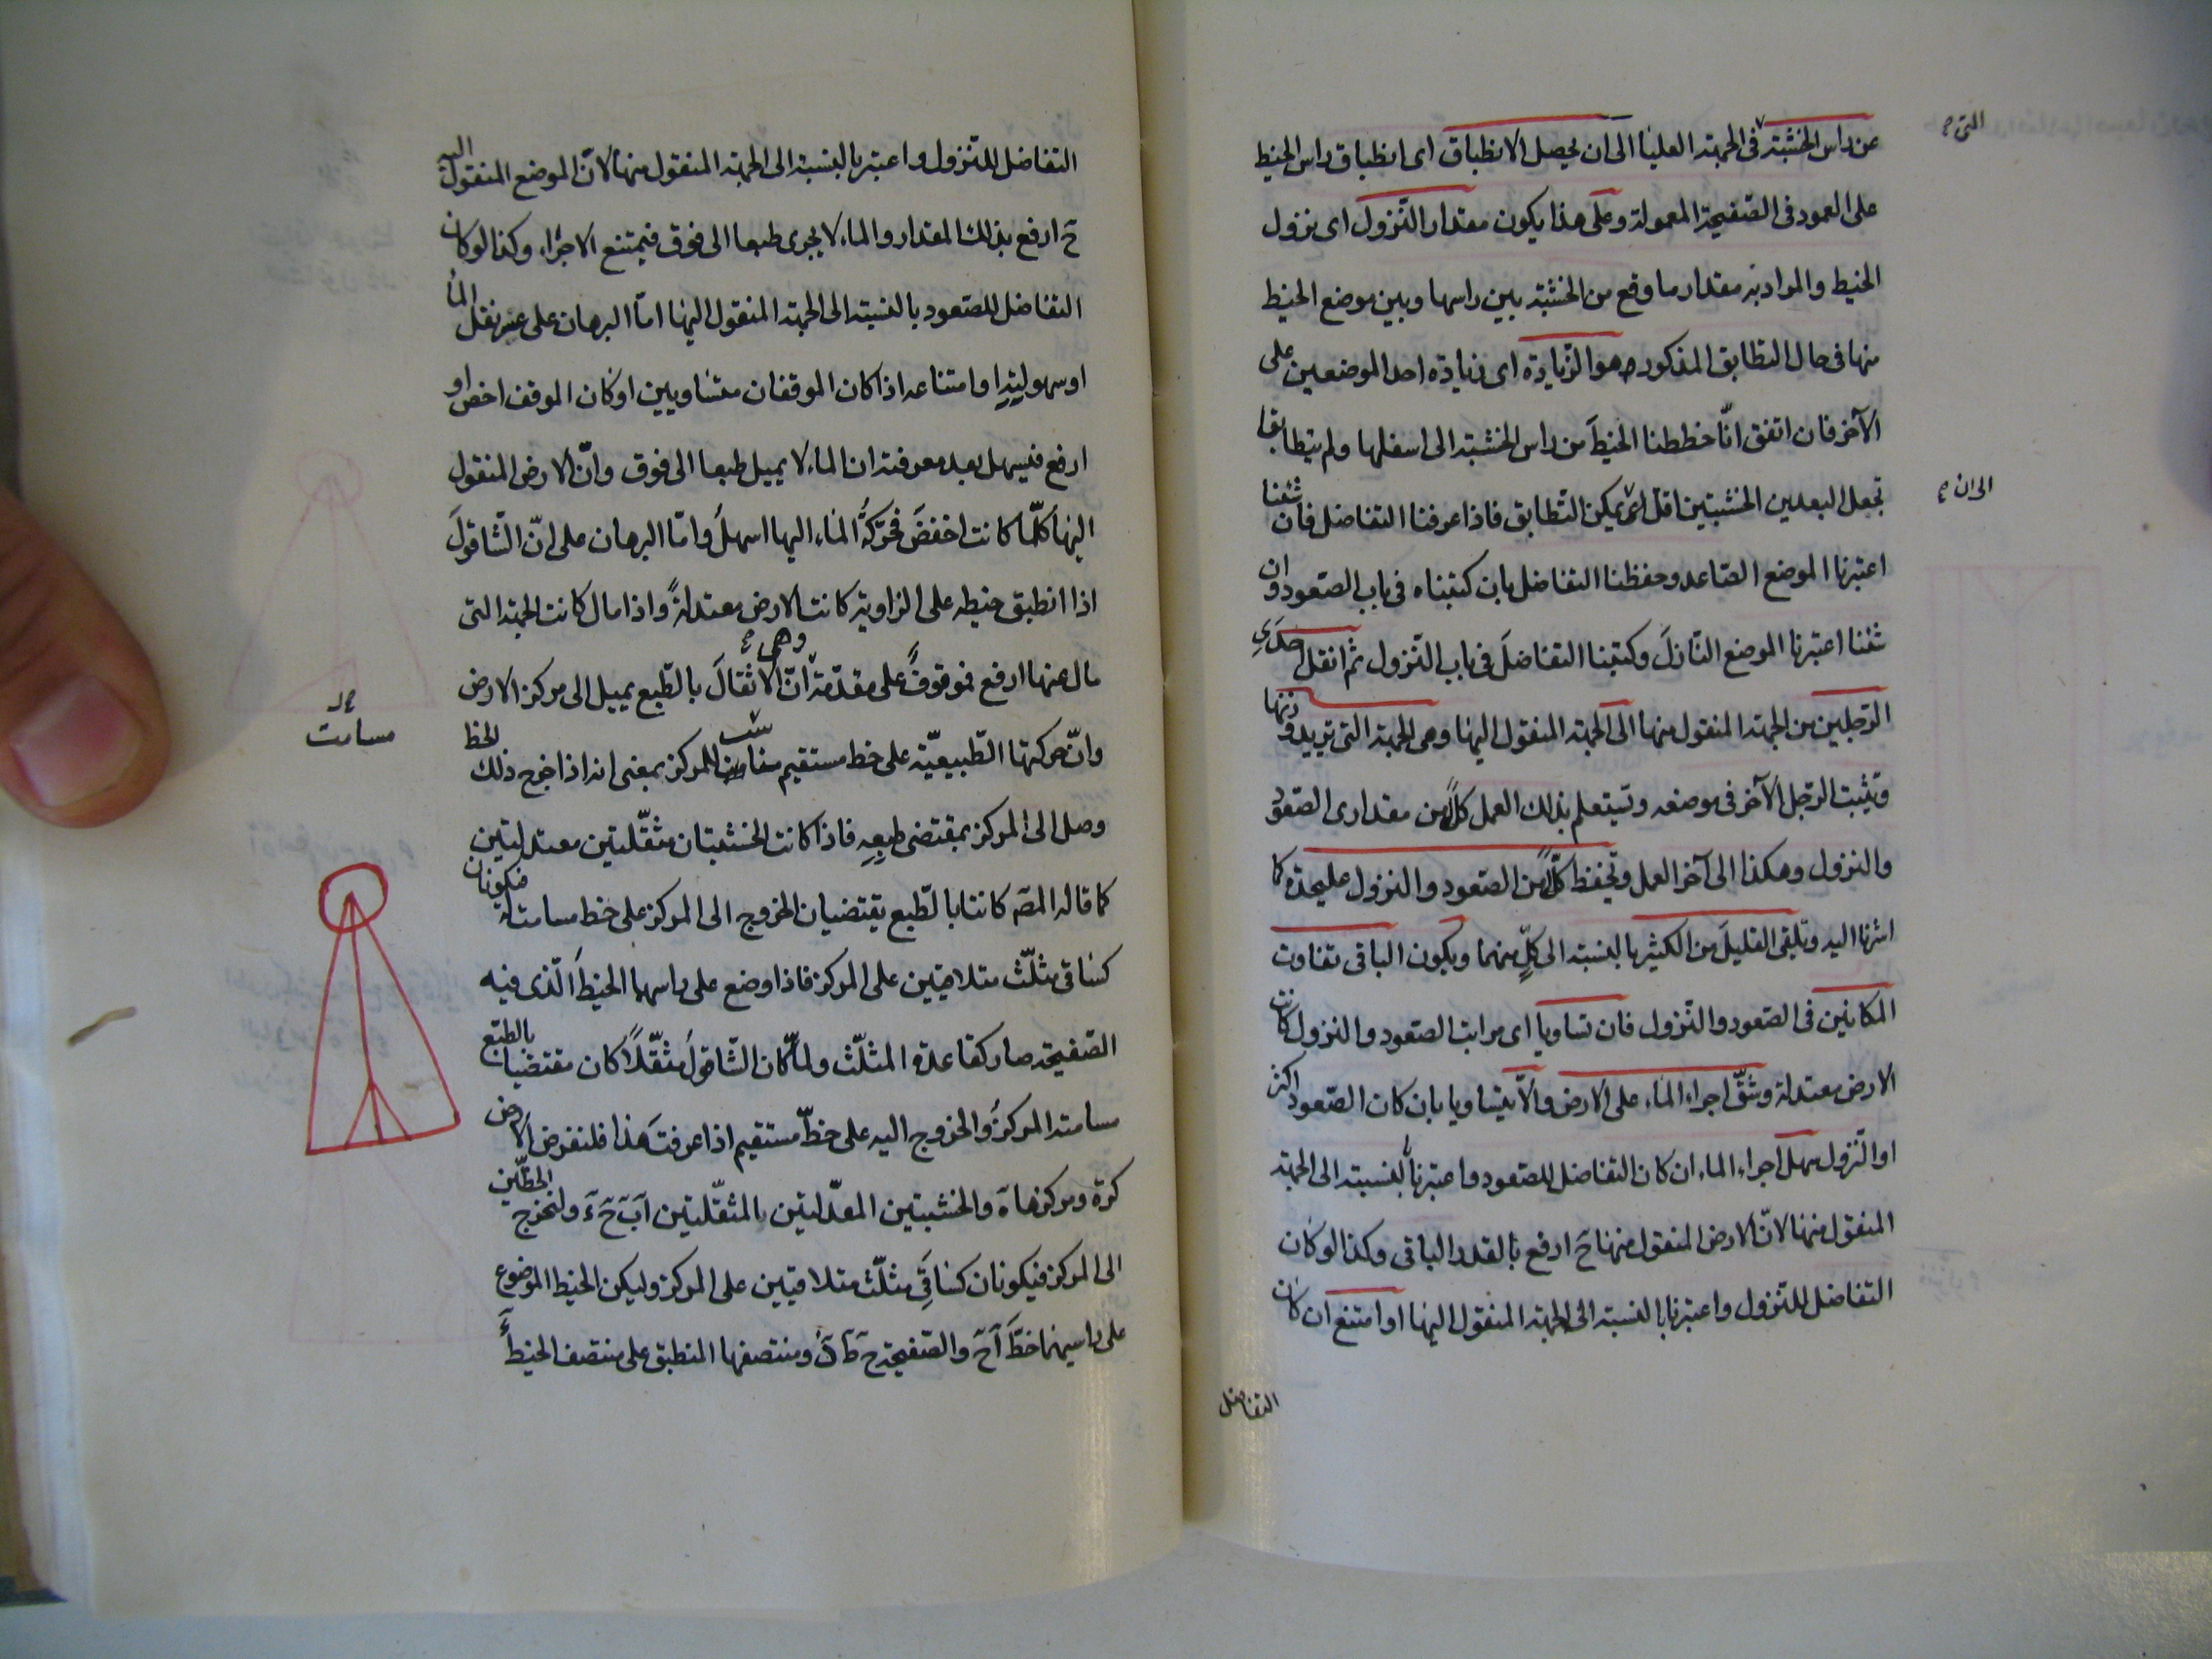 عن راس الخشبة في الجهة العليا الى ان يحصل الانطباق اى انطباق راس الخيط
التى صح
على العمود فى الصّفيحة المعمولة وعلى هذا يكون مقدار النّزول اى نزول
الخيط والمراد به مقدار ما وقع من الخشبة بين راسها وبين موضع الخيط
منها فى حال التطابق المذكور هو الزّيادة اى زيادة احد الموضعين على
الآخر فان اتفق انّا حططنا الخيطَ من راس الخشبة الى اسفلها ولم يتطابقا
نجعل البعد بين الخشبتين اقل يمكن التّطابق فاذا عرفنا التفاضل فان شئنا
الى ان صح
اعتبرنا الموضع الصّاعد وحفظنا التفاضل بان كتبناه فى باب الصّعود وان
شئنا اعتبرنا الموضع النّازلَ وكتبنا التفاضلَ فى باب النّزول ثم انقل احدَى
الرّجلين من الجهة المنقول منها الى الجهة المنقول اليها وهى الجهة التى تريد وزنها
وتثبت الرّجل الآخر فى موضعه وتستعلم بذلك العمل كلًّا من مقدارى الصّعود
والنزول وهكذا الى آخر العمل وتحفظ كلًّا من الصّعود والنزول عليحدة كما
اشرنا اليه وتلقى القليلَ من الكثير بالنسبة الى كلٍّ منهما ويكون الباقى تفاوت
المكانين فى الصّعود والنّزول فان تساويا اى مراتب الصّعود والنزول كانت
الارض معتدلة وشقّ اجراء الماء على الارض والّا يتساويا بان كان الصّعود اكثر
او النّزول سهل اجراء الماء ان كان التفاضل للصّعود واعتبرنا بالنسبة الى الجهة
المنقول منها لانّ الارض المنقول منها ح ارفع بالقدر الباقى وكذا لو كان
التفاضل للنّزول واعتبرنا بالنسبة الى الجهة المنقول اليها او امتنع ان كان
التفاضل
التفاضل للنّزول واعتبر بالنسبة الى الجهة المنقول منها لانّ الموضع المنقول اليه
ح ارفع بذلك المقدار والماء لا يجرى طبعا الى فوق فيمتنع الاجراء وكذا لو كان
التفاضل للصّعود بالنسبة الى الجهة المنقول اليها امّا البرهان على عسر نقل الماء
او سهولته او امتناعه اذا كان الموقفان متساويين او كان الموقف اخفض او
ارفع فيسهل بعد معرفة ان الماء لا يميل طبعا الى فوق وانّ الارض المنقول
اليها كلّما كانت اخفضَ فحركةُ الماء اليها اسهلُ وامّا البرهان على انّ الشّاقولَ
اذا انطبق خيطه على الزاوية كانت الارض معتدلةً واذا مال كانت الجهة التى
مال عنها ارفع فموقوفٌ على مقدّمة وهى صح انّ الاثقالَ بالطّبع يميل الى مركز الارض
وانّ حركتها الطّبيعيّة على خط مستقيم للمركز بمعنى انه اذا اخرج ذلك الخط
مسامت
وصل الى المركز بمقتضى طبعِه فاذا كانت الخشبتان مثقّلتين معتدلتين
كما قاله المصّ كانتا بالطّبع يقتضيان الخروج الى المركز على خط مسامت له فيكونان
كساقى مثلّث متلاقيين على المركز فاذا وضع على راسهما الخيطُ الّذى فيه
الصّفيحة صار كقاعدة المثلّث ولمّا كان الشّاقولُ مثقّلًا كان مقتضيا بالطّبع
مسامتة المركز والخروج اليه على خطّ مستقيم اذا عرفت هذا فلنفرض الارض
كرة ومركزها ه والخشبتين المعدّلتين بالمثقّلتين اب ح ء ولنخرج الخطّين
الى المركز فيكونان كساقَى مثلّث متلاقيين على المركز وليكن الخيط الموضوع
على راسيهما خطّ اح والصّفيحة ح ط ى ومنتصفها المنطبق على منتصف الخيط